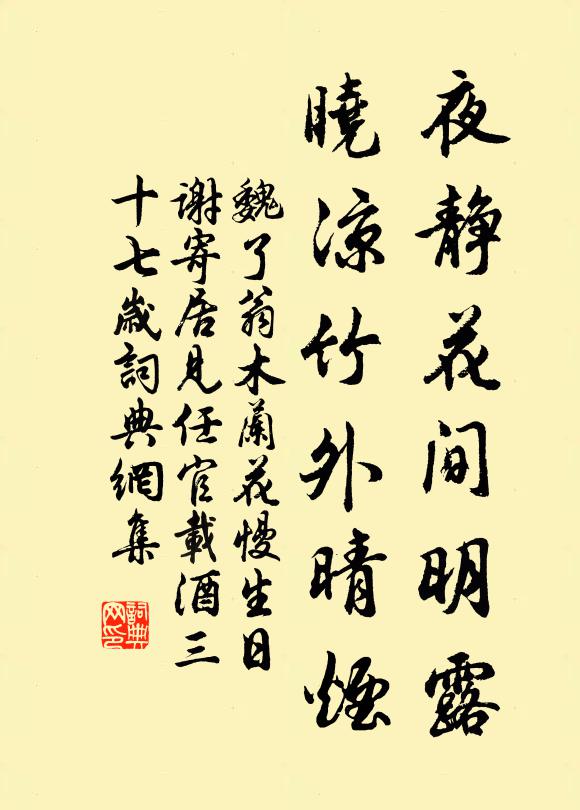 夜静花间明露
曉凉竹外晴煙
魏了翁木蘭花慢生日
谢寄居見任官載酒三
十七歲詞典網集
詞典網印